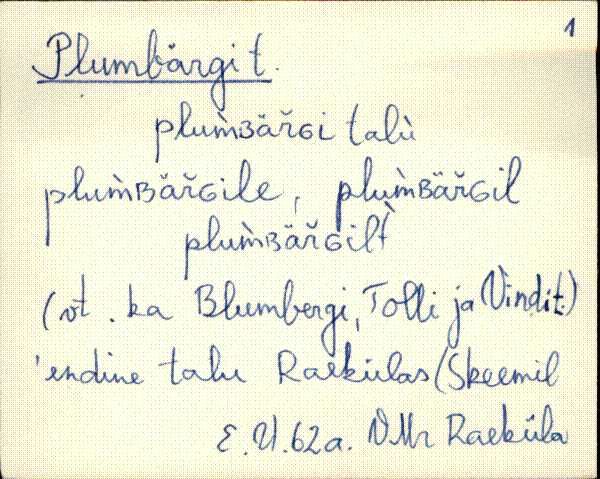 1
Plumbärgi t.
plum̀ʙär̆ɢi talù
plum̀ʙär̆ɢile, plum̀ʙär̆ɢil
plum̀ʙär̆ɢilt̀
(vt. ka Blumbergi, Tolli ja Vindi t.)
endine talu Raekülas (Skeemil
E.U.62a. VMr Raeküla